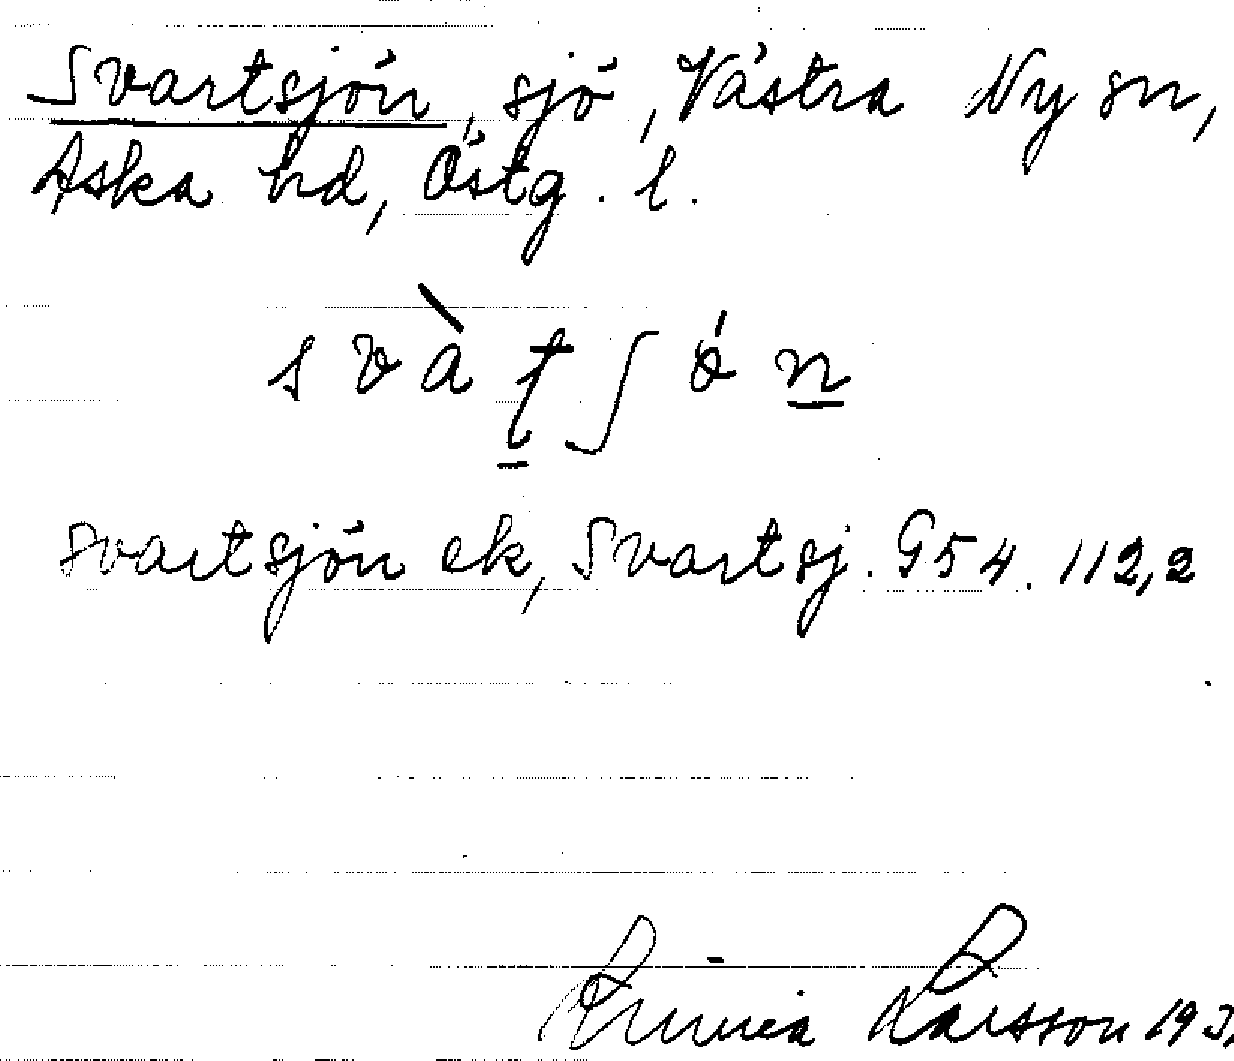 Svartsjön, sjö, Västra Ny sn,
Aska hd, Östg. l.
svàʈʃön
svartsjön ek, Svartsj. G54. 112,2
Larsson 193